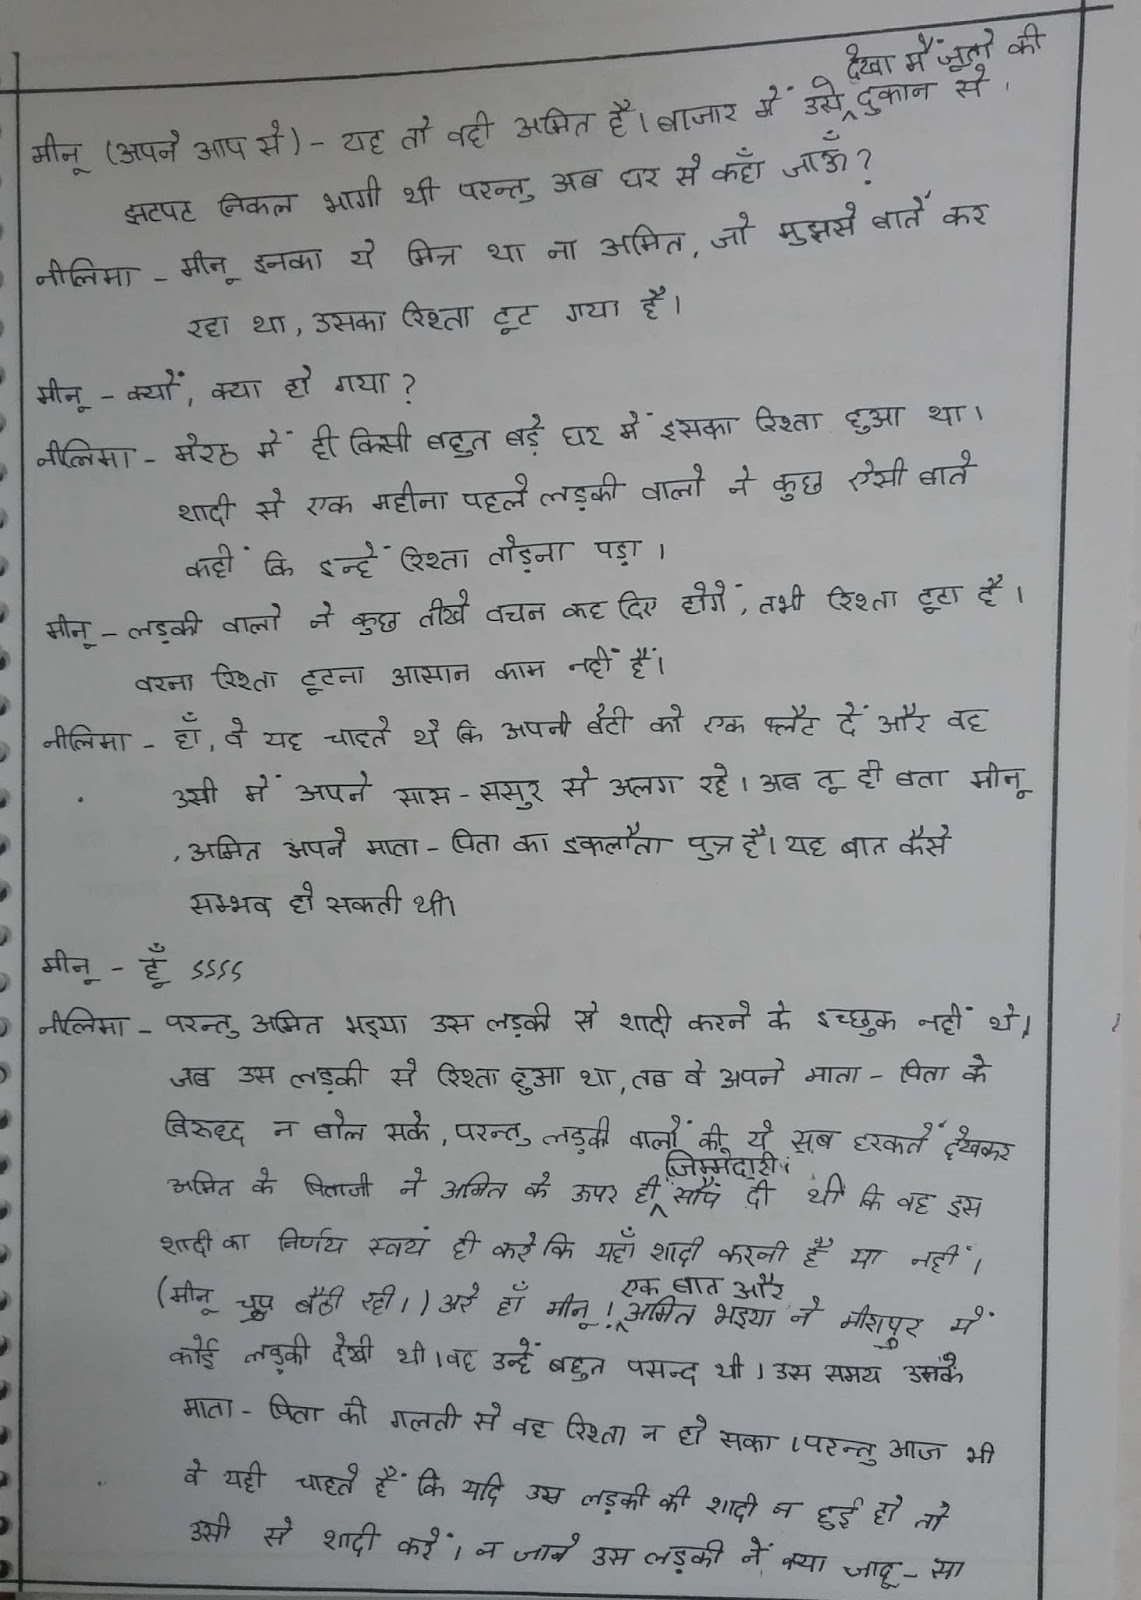 देखा मैं जूतो की
मीनू (अपने आप से) - यह तो वही अमित है। बाजार में उसे दुकान से
झटपट निकल भागी थी परन्तु अब घर से कहाँ जाऊँ?
नीलिमा - मीनू इनका ये मित्र था ना अमित, जो मुझसे बातें कर
रहा था, उसका रिश्ता टूट गया है।
मीनू - क्यों, क्या हो गया?
नीलिमा - मेरठ में ही किसी बहुत बड़े घर में इसका रिश्ता हुआ था।
शादी से एक महीना पहले लड़की वालो ने कुछ ऐसी बाते
कहीं कि इन्हें रिश्ता तोड़ना पड़ा।
मीनू - लड़की वालो ने कुछ तीखे वचन कह दिए होगें, तभी रिश्ता टूटा है।
वरना रिश्ता टूटना आसान काम नहीं हैं।
नीलिमा - हाँ, वे यह चाहते थे कि अपनी बेटी को एक फ्लैट दें और वह
उसी में अपने सास - ससुर से अलग रहे। अब तू ही बता मीनू
, अमित अपने माता - पिता का इकलौता पुत्र है। यह बात कैसे
सम्भव हो सकती थी।
मीनू - हूँ ऽऽऽऽ
नीलिमा - परन्तु अमित भइया उस लड़की से शादी करने के इच्छुक नहीं थे।
जब उस लड़की से रिश्ता हुआ था, तब वे अपने माता - पिता के
विरुध्द न बोल सके, परन्तु लड़की वालों की ये सब हरकतें देखकर
जिम्मेदारी
अमित के पिताजी ने अमित के ऊपर ही सौंप दी थी कि वह इस
शादी का निर्णय स्वयं ही करे कि यहाँ शादी करनी है या नहीं।
एक बात और
(मीनू चुप बैठी रही।) अरे हाँ मीनू! अमित भइया ने मीरापुर में
कोई लड़की देखी थी। वह उन्हें बहुत पसन्द थी। उस समय उनके
माता - पिता की गलती से वह रिश्ता न हो सका। परन्तु आज भी
वे यही चाहते हैं कि यदि उस लड़की की शादी न हुई हो तो
उसी से शादी करें। न जाने उस लड़की नें क्या जादू - सा